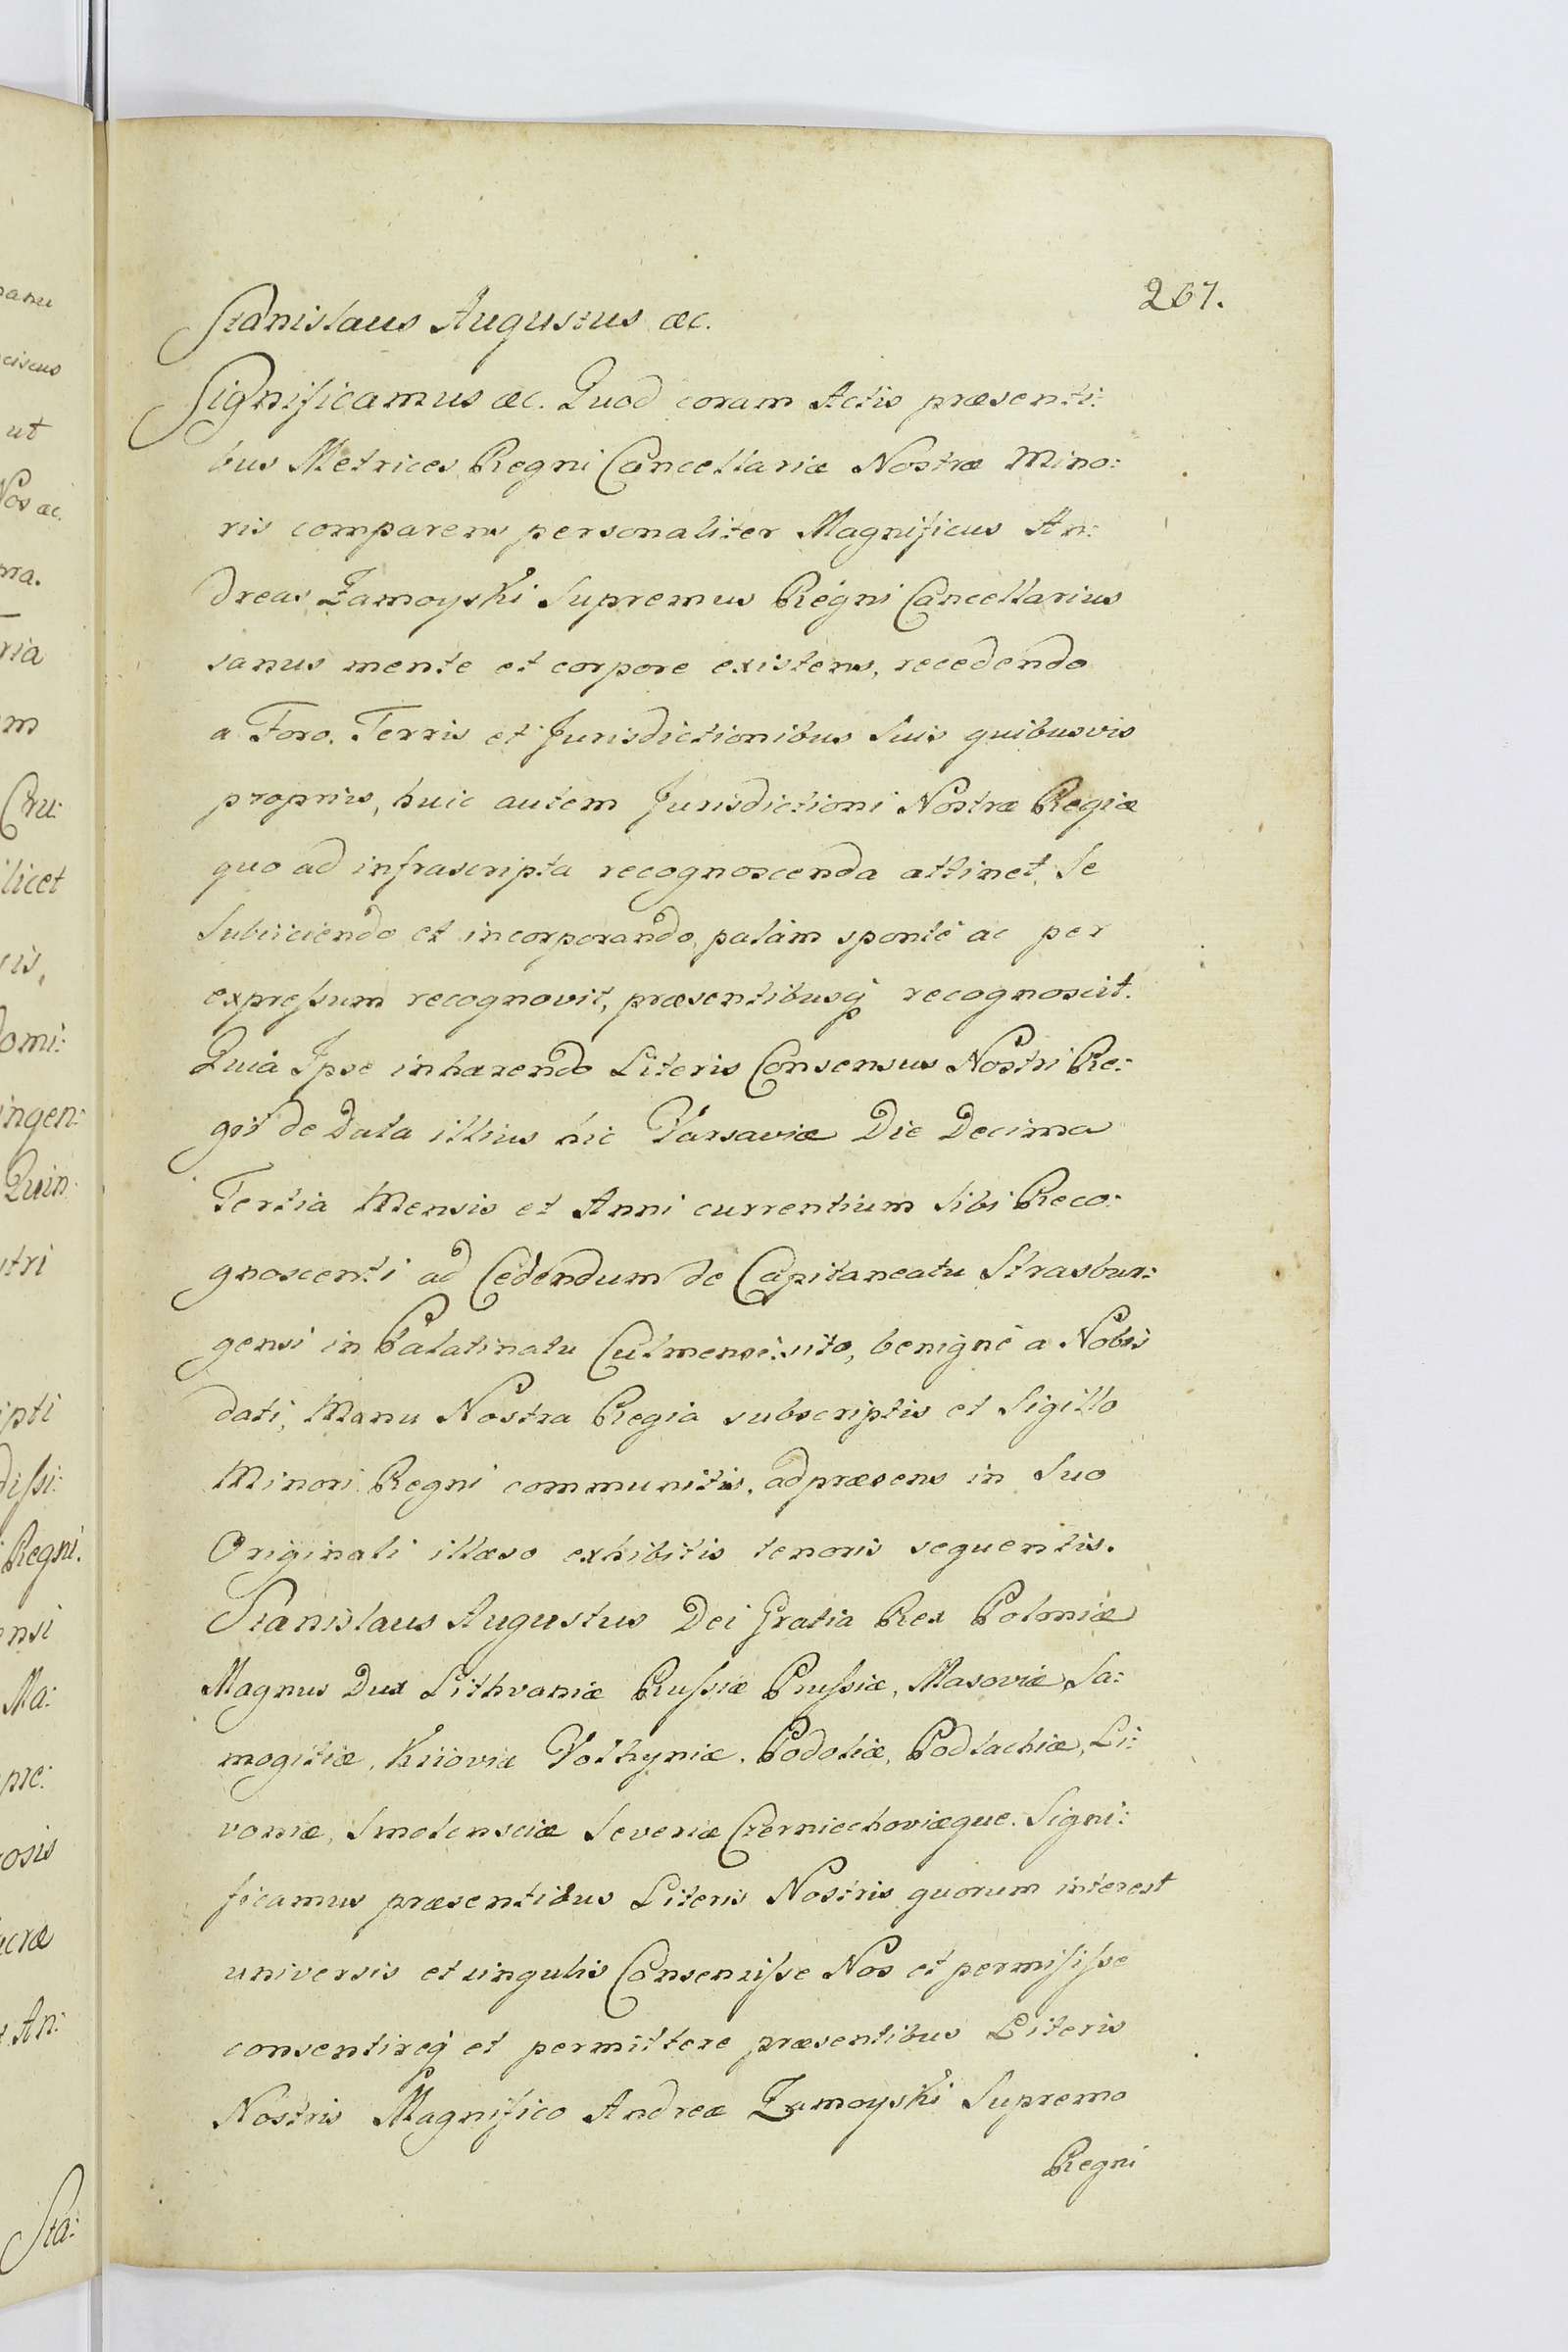 267.
Stanislaus Augustus &c.
Significamus &c. Quod coram Actis præsenti:
bus Metrices Regni Cancellariæ Nostræ Mino:
ris comparens personaliter Magnificus An:
dreas Zamoyski Supremus Regni Cancellarius
sanus mente et corpore existens, recedendo
a Foro, Terris et Jurisdictionibus Suis quibusvis
propriis, huic autem Jurisdictioni Nostræ Regiæ
quo ad infrascripta recognoscenda attinet, Se
Subiiciendo et incorporando, palàm spontè ac per
expreſsum recognovit, præsentibusq recognoscit.
Quià Ipse inhærendo Literis Consensus Nostri Re:
gii de Data illius hic Varsaviæ Die Decima
Tertia Mensis et Anni currentium Sibi Reco:
gnoscenti ad Cedendum de Capitaneatu Strasbur:
gensi in Palatinatu Culmensi sito, benignè a Nobis
dati, Manu Nostra Regia subscriptis et Sigillo
Minori Regni communitis, ad præsens in Suo
Originali illæso exhibitis tenoris sequentis.
Stanislaus Augustus Dei Gratia Rex Poloniæ
Magnus Dux Lithvaniæ Ruſsiæ Pruſsiæ, Masoviæ, Sa:
mogitiæ, Kiioviæ Volhyniæ, Podoliæ, Podlachiæ, Li:
voniæ, Smolensciæ Severiæ Czerniechoviæque. Signi:
ficamus præsentibus Literis Nostris quorum interest
universis et singulis Consensiſse Nos et permiſiſse
consentireq et permittere præsentibus Literis
Nostris Magnifico Andreæ Zamoyski Supremo
Regni